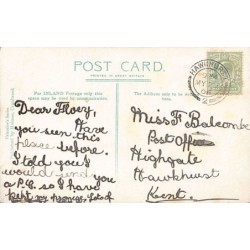 POST CARD.
PRINTED IN GREAT BRITAIN
For INLAND Postage only this space may be used for communication.
THE ADDRESS ONLY TO BE WRITTEN HERE.
HAWKHURST
MY
Dear Floey,
Have
you seen this
place before.
I told you I
would send you
a P.C. so I have
kept my promise, Lots of
Miss F. Balcombe
Post Office
Highgate
Hawkhurst
Kent.